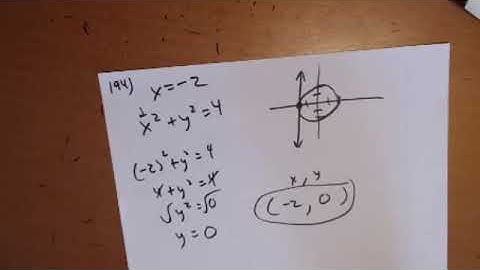 194)
x = -2
x² + y² = 4
(-2)² + y² = 4
4 + y² = 4
√y² = √0
y = 0
x, y
(-2, 0)